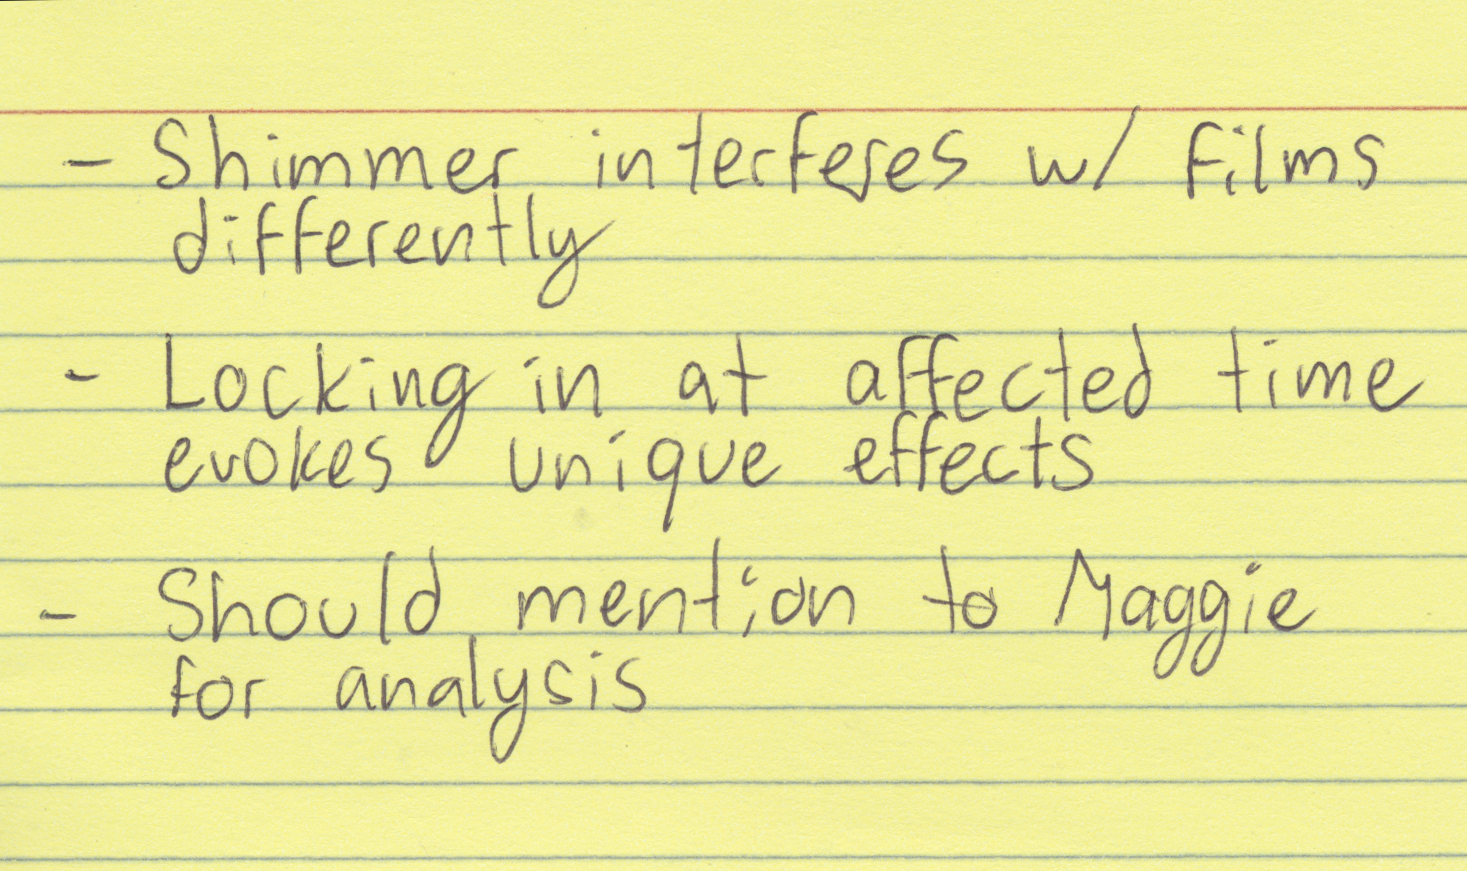 - Shimmer interferes w/ films
differently
- Locking in at affected time
evokes unique effects
- Should mention to Maggie
for analysis